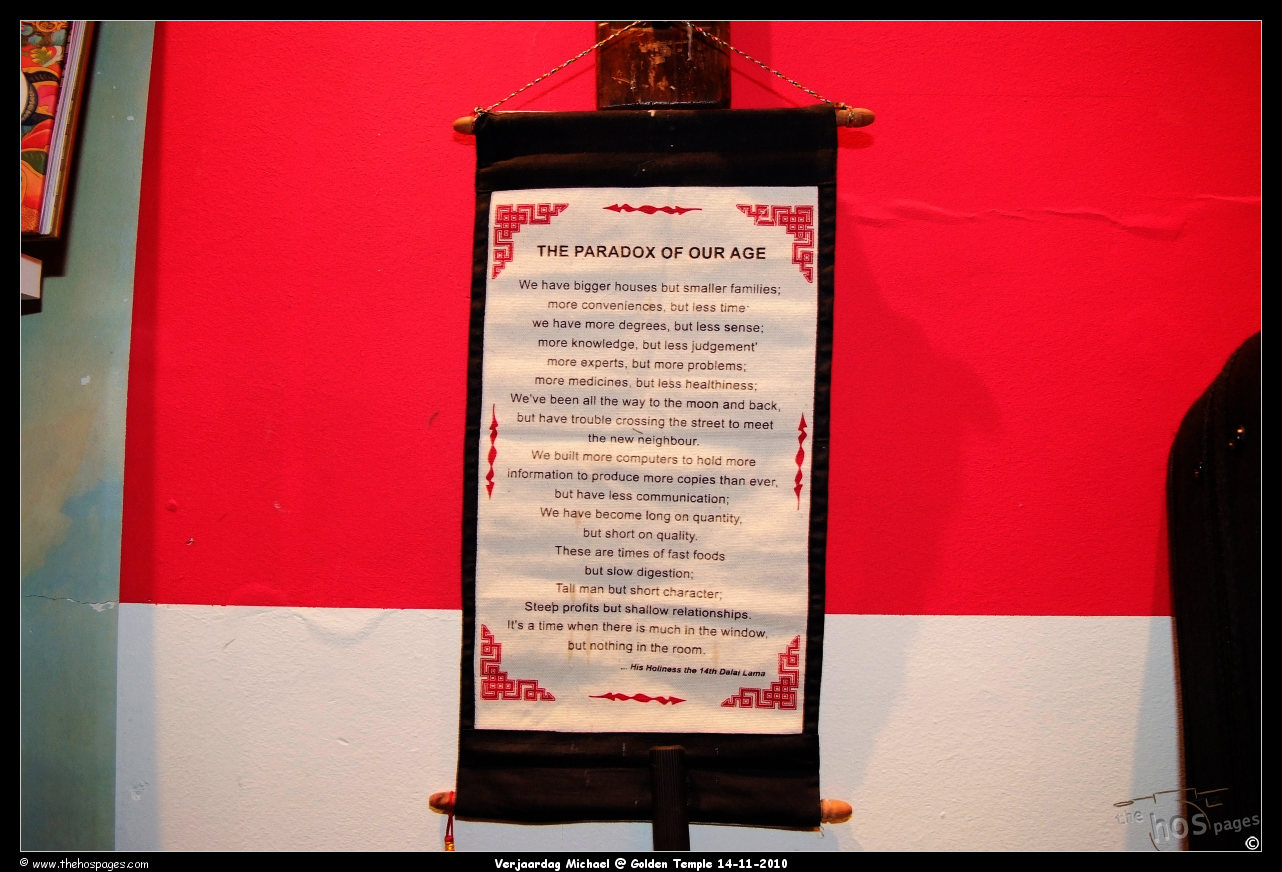 THE PARADOX OF OUR AGE
We have bigger houses but smaller families;
more conveniences, but less time·
we have more degrees, but less sense;
more knowledge, but less judgement'
more experts, but more problems;
more medicines, but less healthiness;
We've been all the way to the moon and back,
but have trouble crossing the street to meet
the new neighbour.
We built more computers to hold more
information to produce more copies than ever,
but have less communication;
We have become long on quantity,
but short on quality.
These are times of fast foods
but slow digestion;
Tall man but short character;
Steep profits but shallow relationships.
It's a time when there is much in the window,
but nothing in the room.
... His Holiness the 14th Dalai Lama
the hos pages
©
© www.thehospages.com
Verjaardag Michael @ Golden Temple 14-11-2010